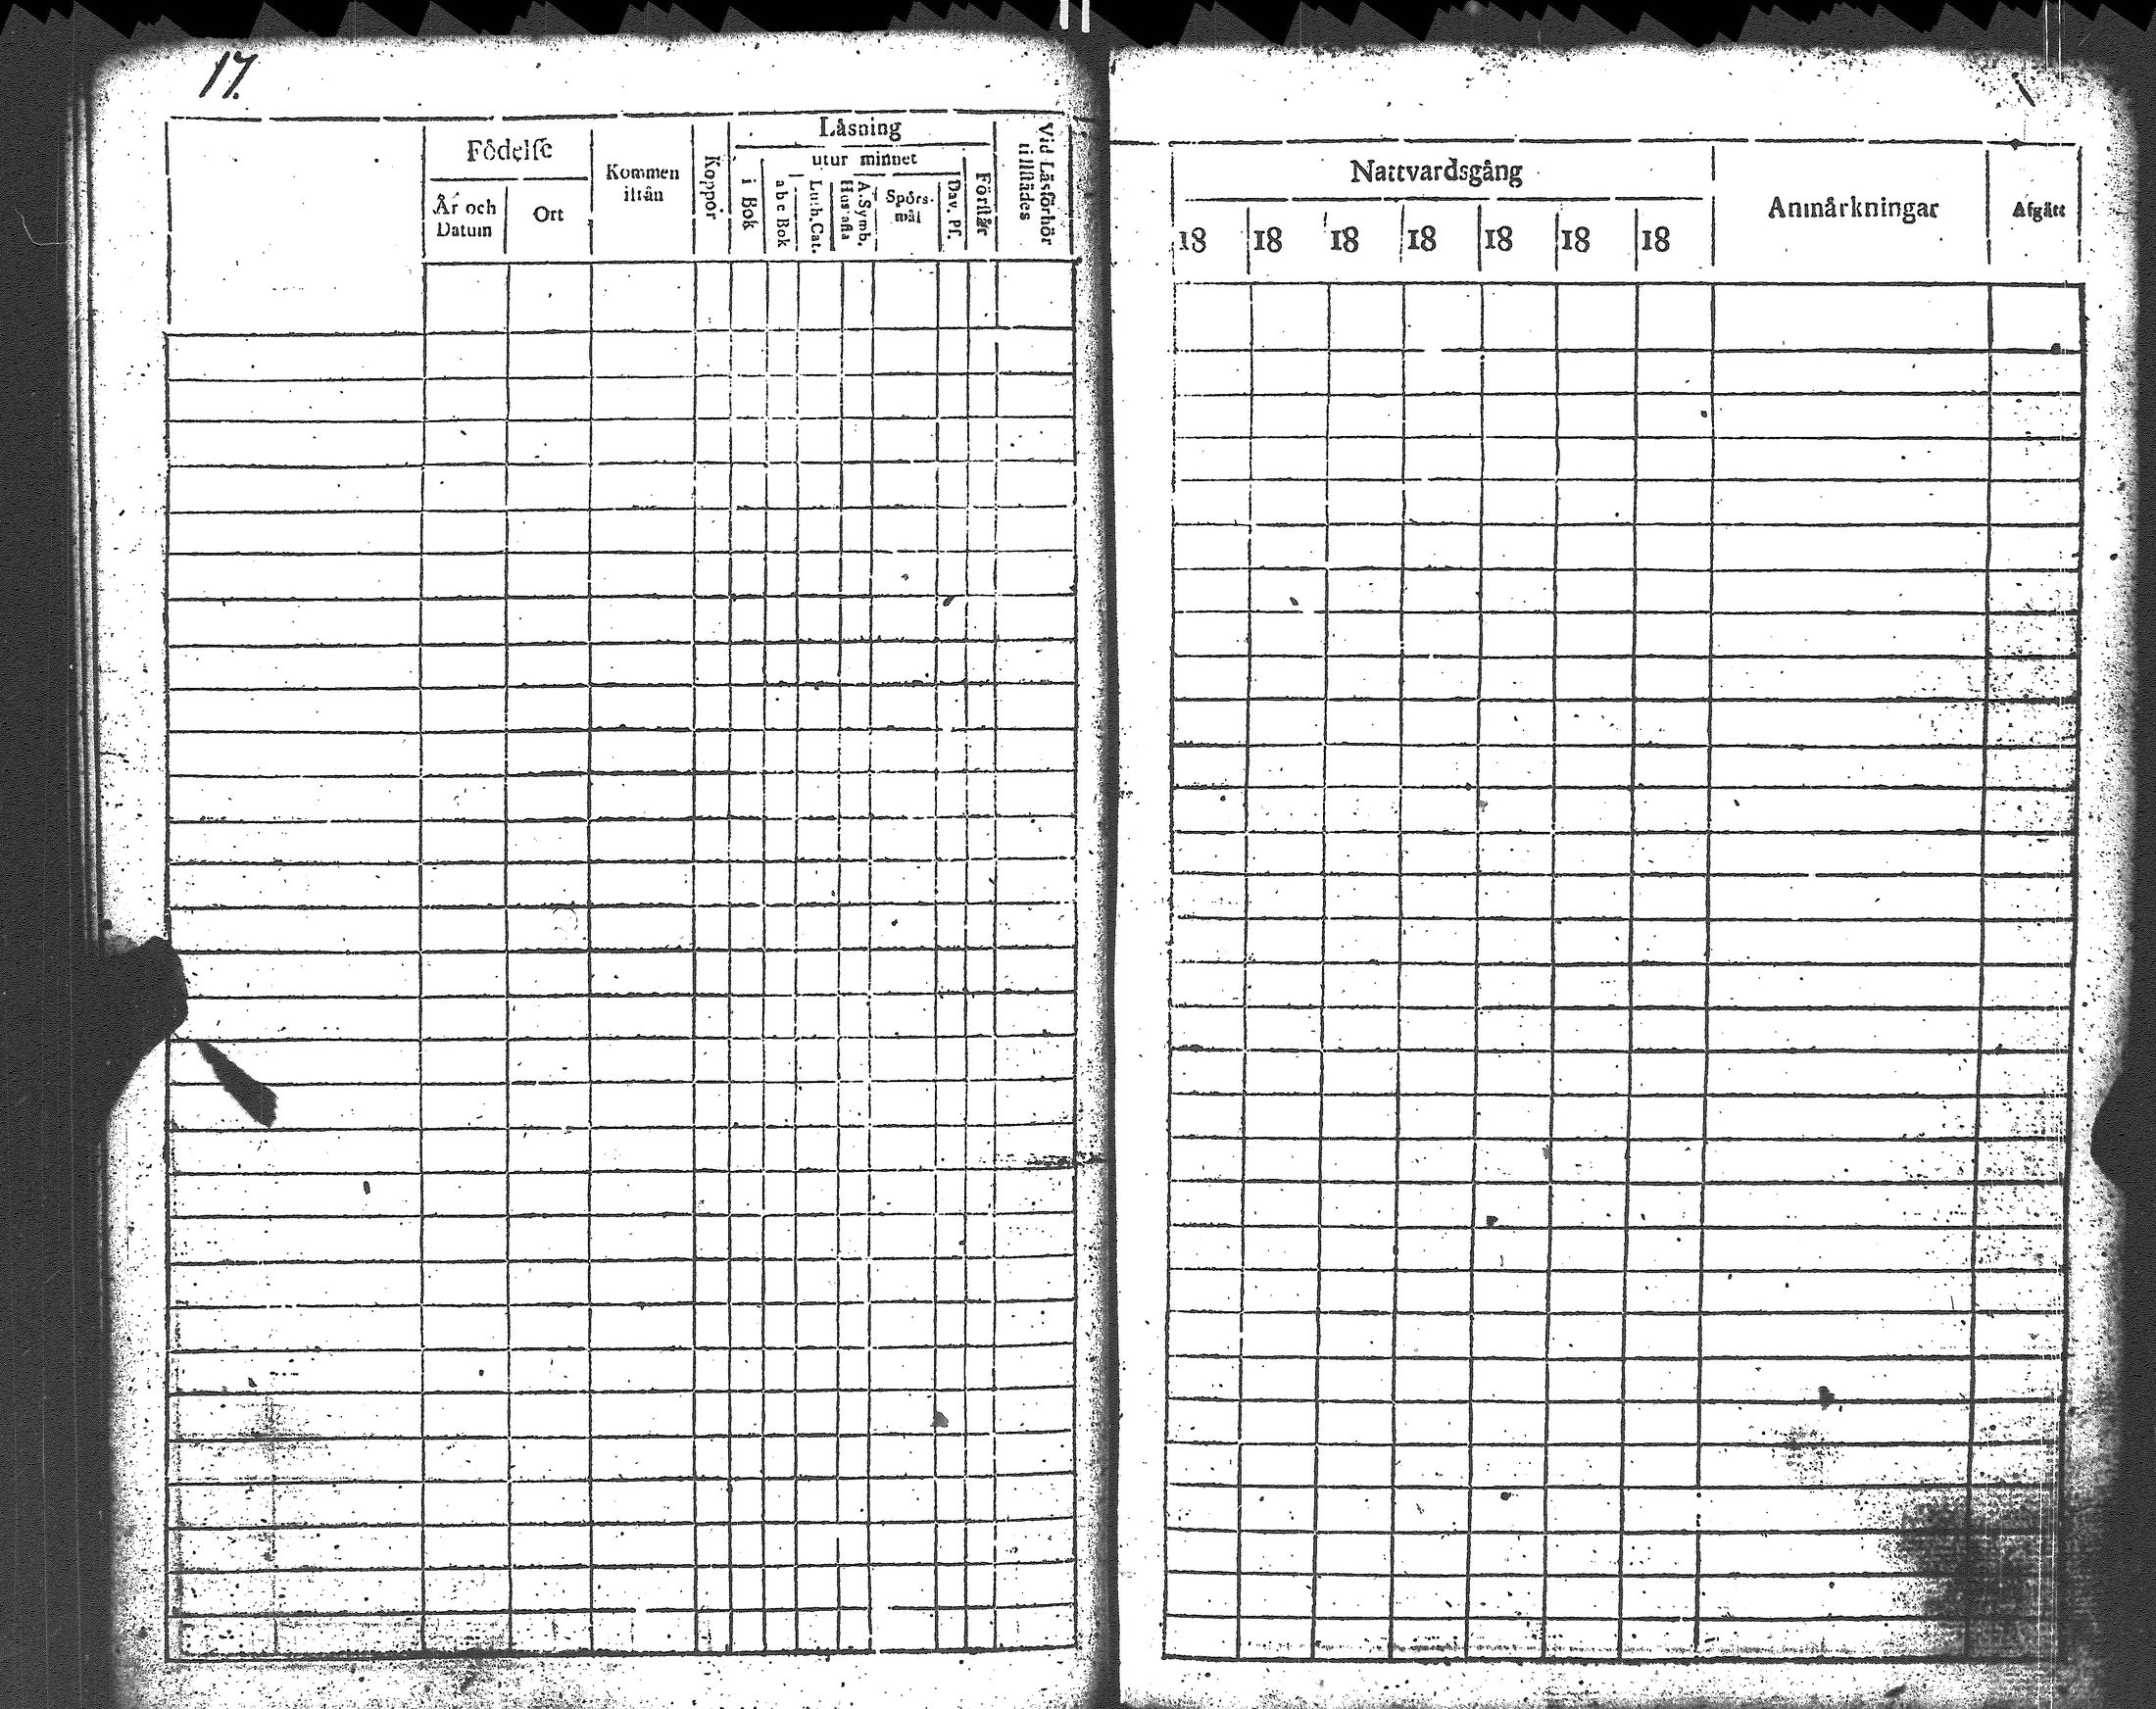 17.
Födelse
År och Datum
Ort
Kommen ifrån
Koppor
Läsning
i Bok
utur minnet
a b c Bok
Luth. Cat.
Hustafla
A. Symb.
Spörs-mål
Dav. Ps.
Förstår
Vid Läsförhör tillstädes
Nattvardsgång
18 18 18 18 18 18 18
Anmärkningar
Afgått